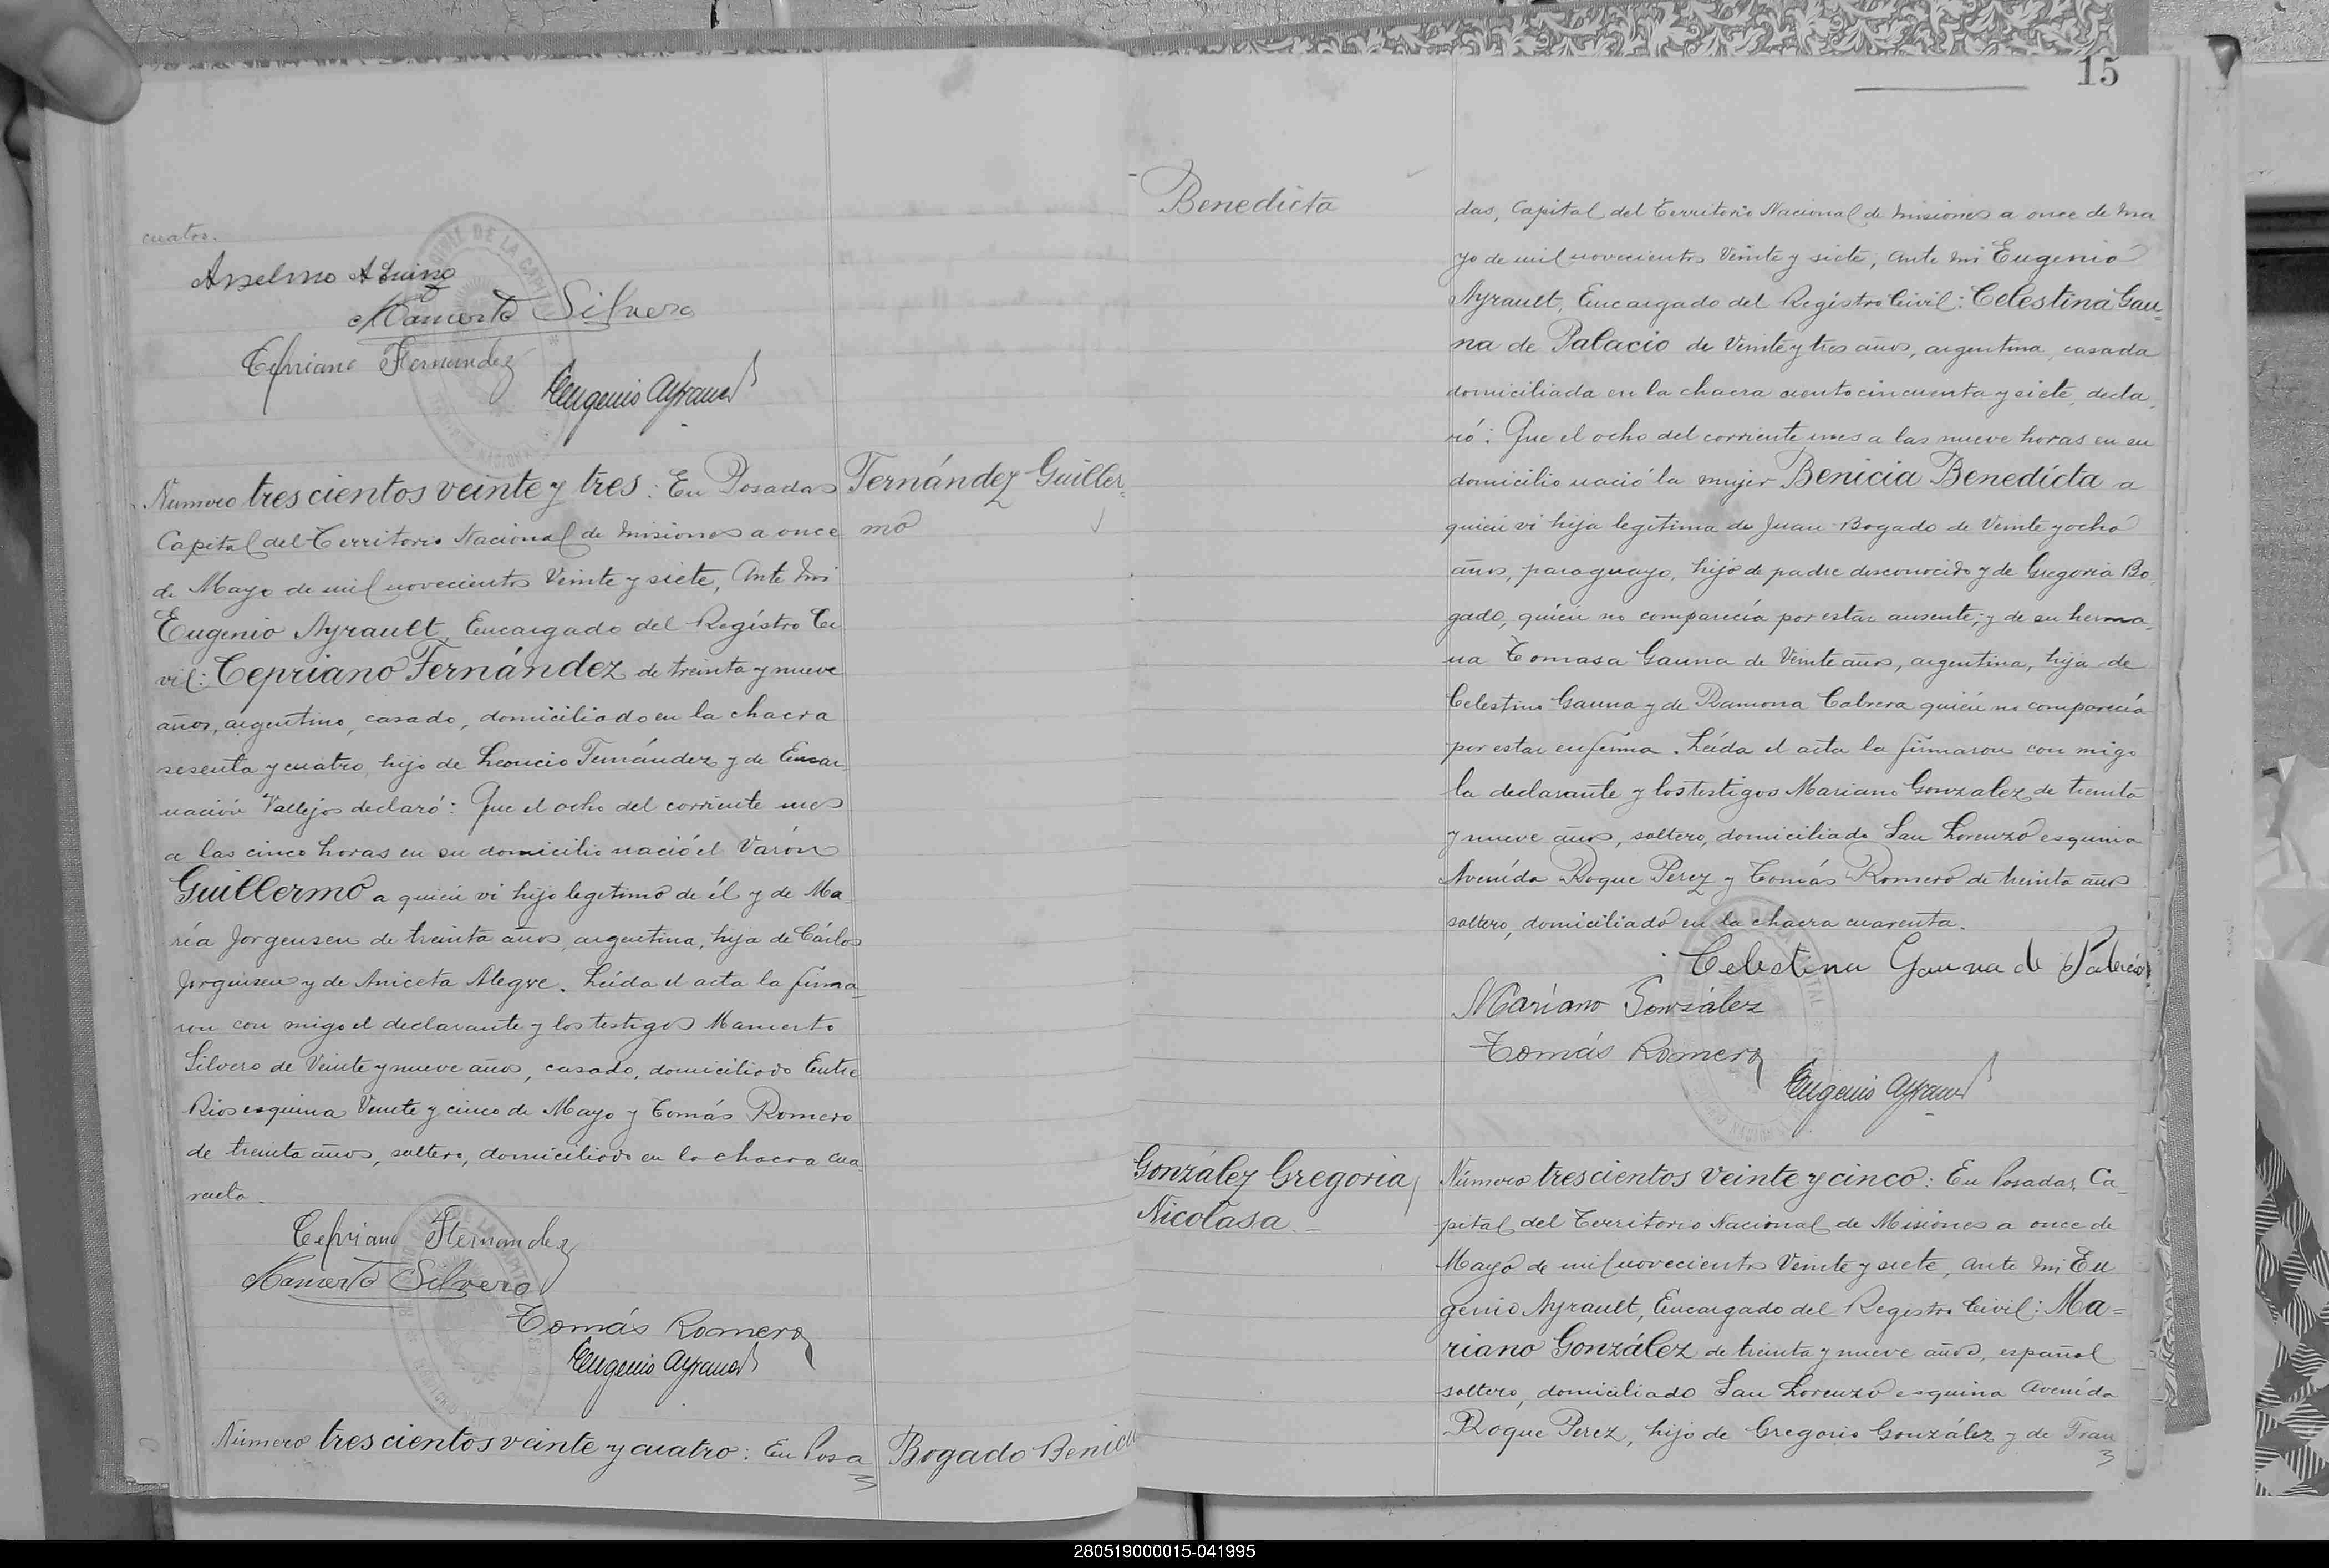 cuatro.
Anselmo Aquino
Mamerto Silvero
Cepriano Fernandez
Eugenio Ayrault
Número trescientos veinte y tres: En Posadas
Capital del Territorio Nacional de Misiones a once
de Mayo de mil novecientos Veinte y siete, Ante mi
Eugenio Ayrault, Encargado del Registro Ci
vil: Cepriano Fernández de treinta y nueve
años, argentino, casado, domiciliado en la chacra
sesenta y cuatro, hijo de Leoncio Fernández y de Encar-
nación Vallejos declaró: Que el ocho del corriente mes
a las cinco horas en su domicilio nació el Varón
Guillermo a quien vi hijo legítimo de él y de Ma
ría Jorgensen de treinta años, argentina, hija de Cárlos
Jorgensen y de Aniceta Alegre. Leída el acta la firma-
ron con migo el declarante y los testigos Mamerto
Silvero de Veinte y nueve años, casado, domiciliado Entre
Rios esquina Veinte y cinco de Mayo y Tomás Romero
de treinta años, soltero, domiciliado en la chacra cua
renta.
Cepriano Fernandez
Mamerto Silvero
Tomás Romero
Eugenio Ayrault
Número trescientos veinte y cuatro: En Posa
Fernández Guiller-
mo
Bogado Benicia
15
Benedicta
das, Capital del Territorio Nacional de Misiones a once de Ma
yo de mil novecientos Veinte y siete, Ante mi Eugenio
Ayrault, Encargado del Registro Civil: Celestina Gau-
na de Palacio de Veinte y tres años, argentina, casada
domiciliada en la chacra ciento cincuenta y siete, decla-
ró: Que el ocho del corriente mes a las nueve horas en su
domicilio nació la mujer Benicia Benedícta a
quien vi hija legítima de Juan Bogado de Veinte y ocho
años, paraguayo, hijo de padre desconocido y de Gregoria Bo-
gado, quién no comparecía por estar ausente; y de su herma-
na Tomasa Gauna de Veinte años, argentina, hija de
Celestino Gauna y de Ramona Cabrera quién no comparecía
por estar enferma. Leída el acta la firmaron con migo
la declarante y los testigos Mariano Gonzalez de treinta
y nueve años, soltero, domiciliado San Lorenzo esquina
Avenída Roque Perez y Tomás Romero de treinta años
soltero, domiciliado en la chacra cuarenta.
Celestina Gauna de Palacio
Mariano González
Tomás Romero
Eugenio Ayrault
González Gregoria
Nicolasa
Número trescientos veinte y cinco: En Posadas, Ca-
pital del Territorio Nacional de Misiones a once de
Mayo de mil novecientos Veinte y siete, ante mi Eu
genio Ayrault, Encargado del Registro Civil: Ma=
riano González de treinta y nueve años, español
soltero, domiciliado San Lorenzo esquina Avenída
Roque Perez, hijo de Gregorio González y de Fran
280519000015-041995